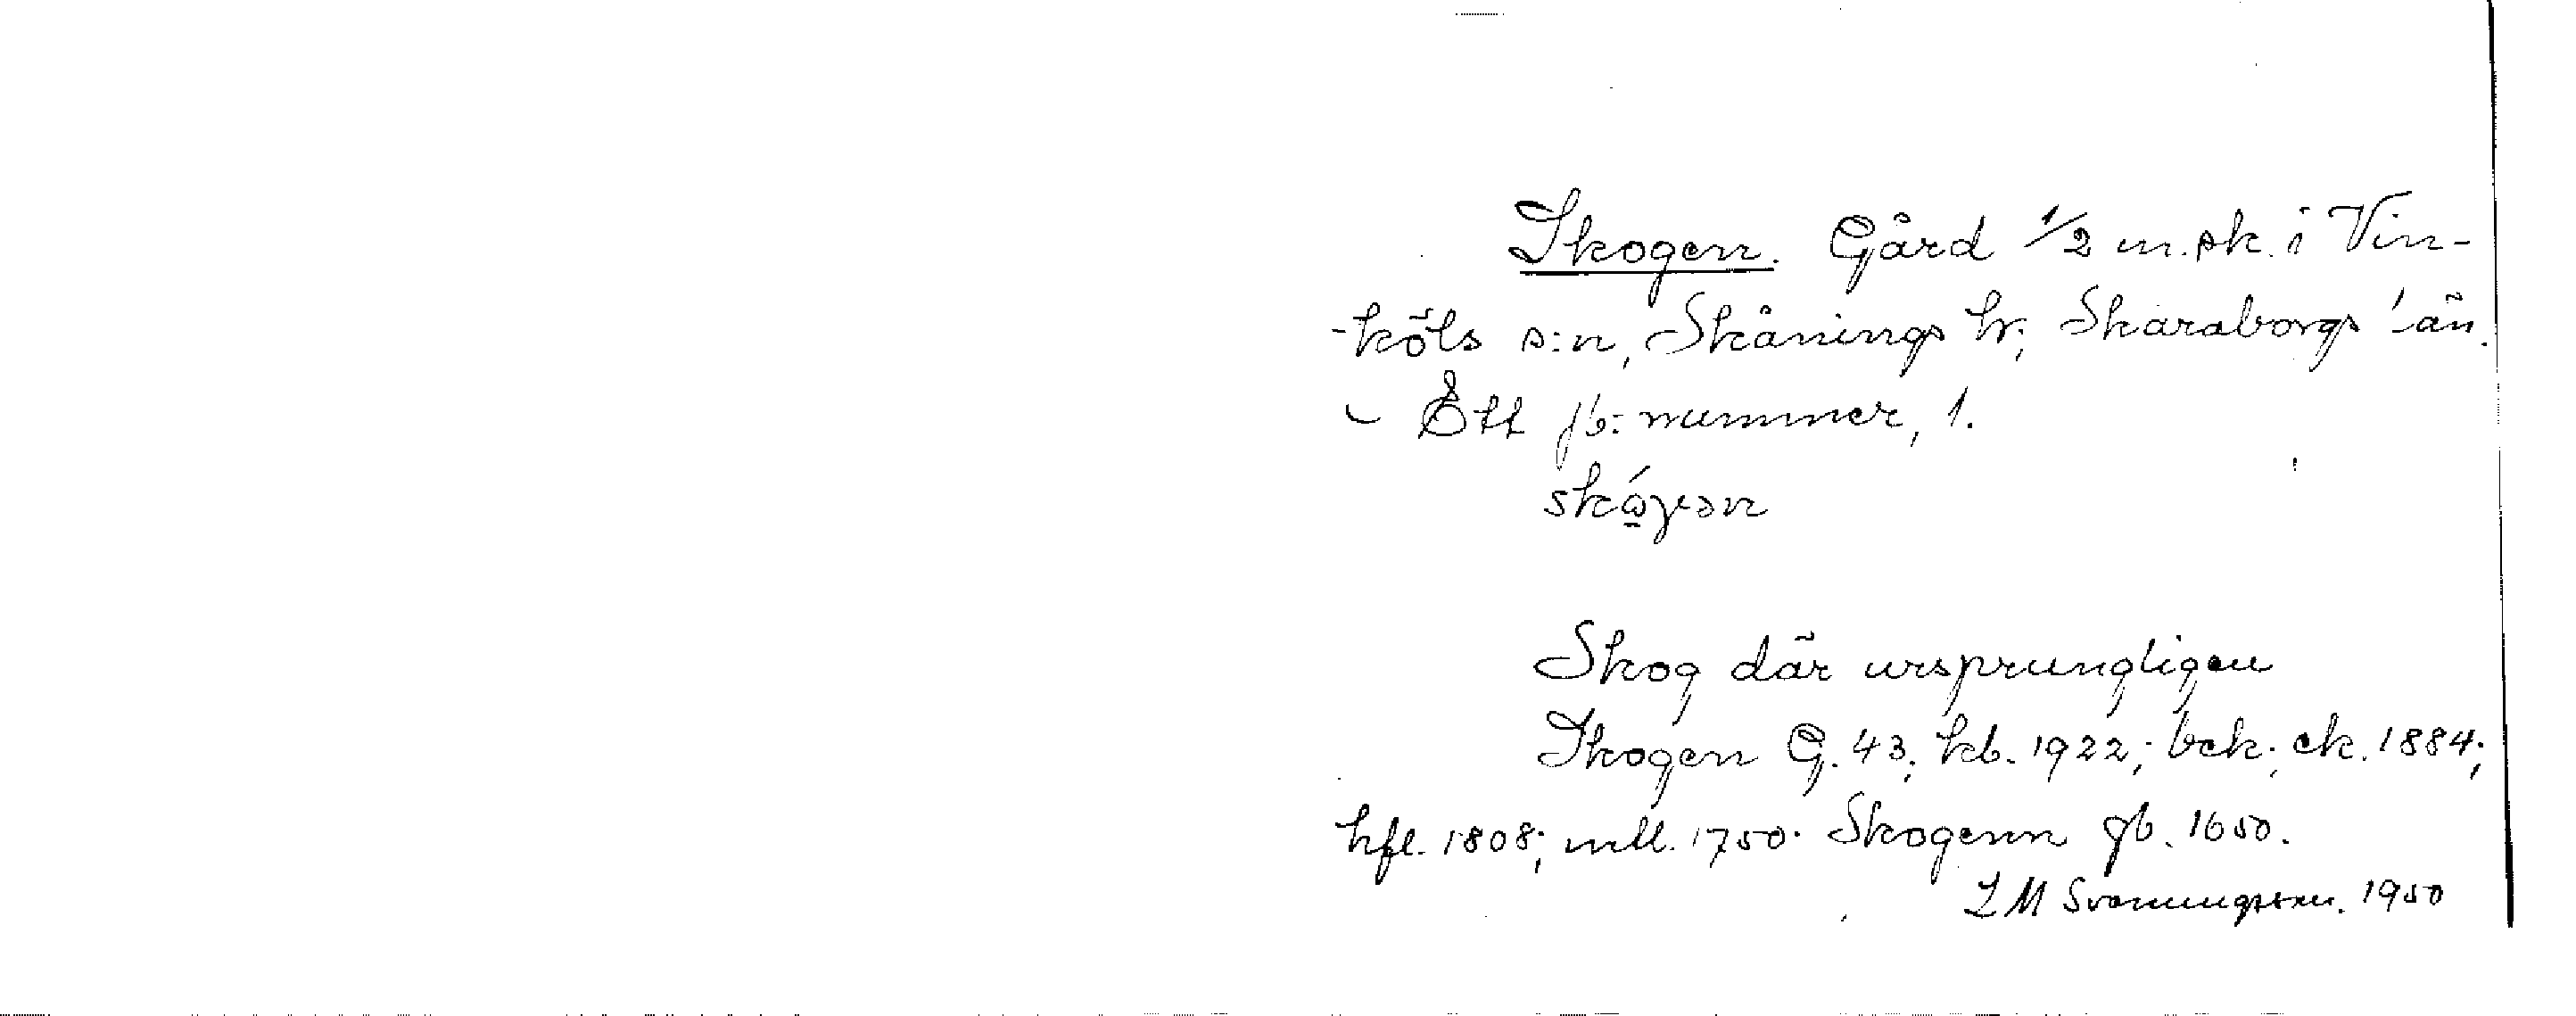 Skogen. Gård 1/2 m. sk. i Vin-
-köls s:n, Skånings hr; Skaraborgs län.
- Ett jb: nummer, 1.
skógən
Skog där ursprungligen
Skogen G. 43; kb. 1922; bck; ck. 1884;
hfl. 1808; mll. 1750. Skogenn gb. 1650.
I M Svenungsson. 1950